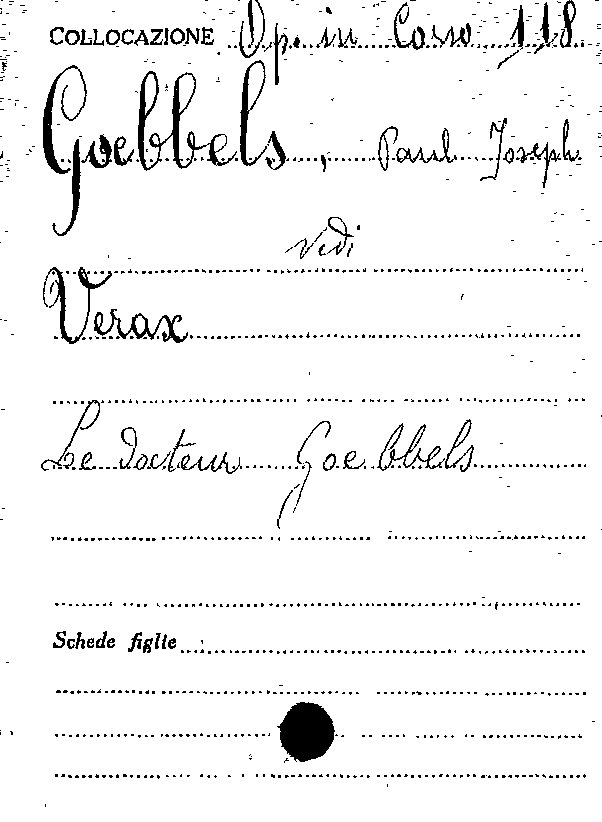 COLLOCAZIONE Op. in Corso 118
Goebbels, Paul Joseph
vedi
Verax
Le docteur Goebbels
Schede figlie